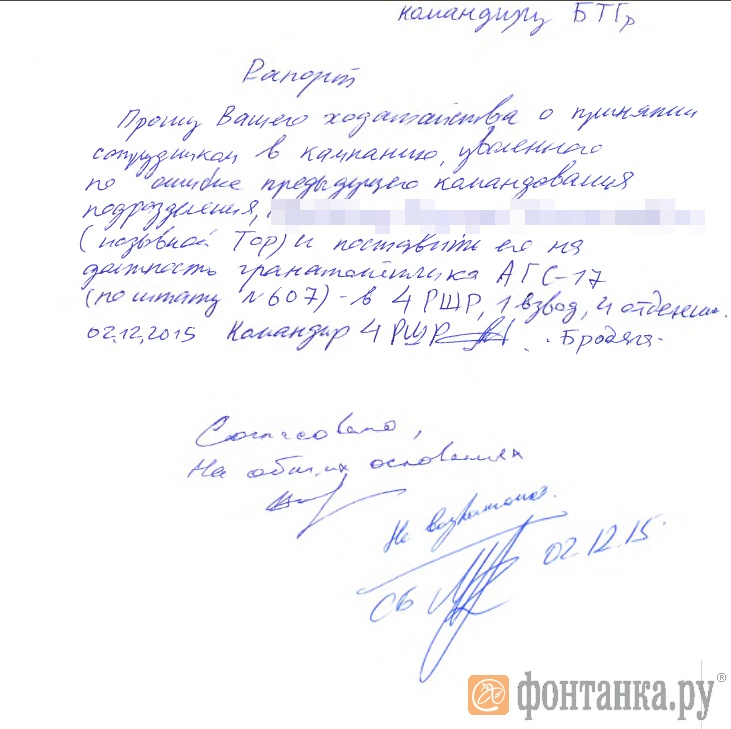 командиру БТГр
Рапорт
Прошу Вашего ходатайства о принятии
сотрудником в кампанию, уволенного
по ошибке предыдущего командования
подразделения,
(позывной Тор) и поставить его на
должность гранатомётчика АГС-17
(по штату №607) - в 4 РШР, 1 взвод, 4 отделение.
02.12.2015 Командир 4 РШР . Бродяга.
Согласовано,
На общих основаниях
Не возражаю.
СБ 02.12.15.
фонтанка.ру®